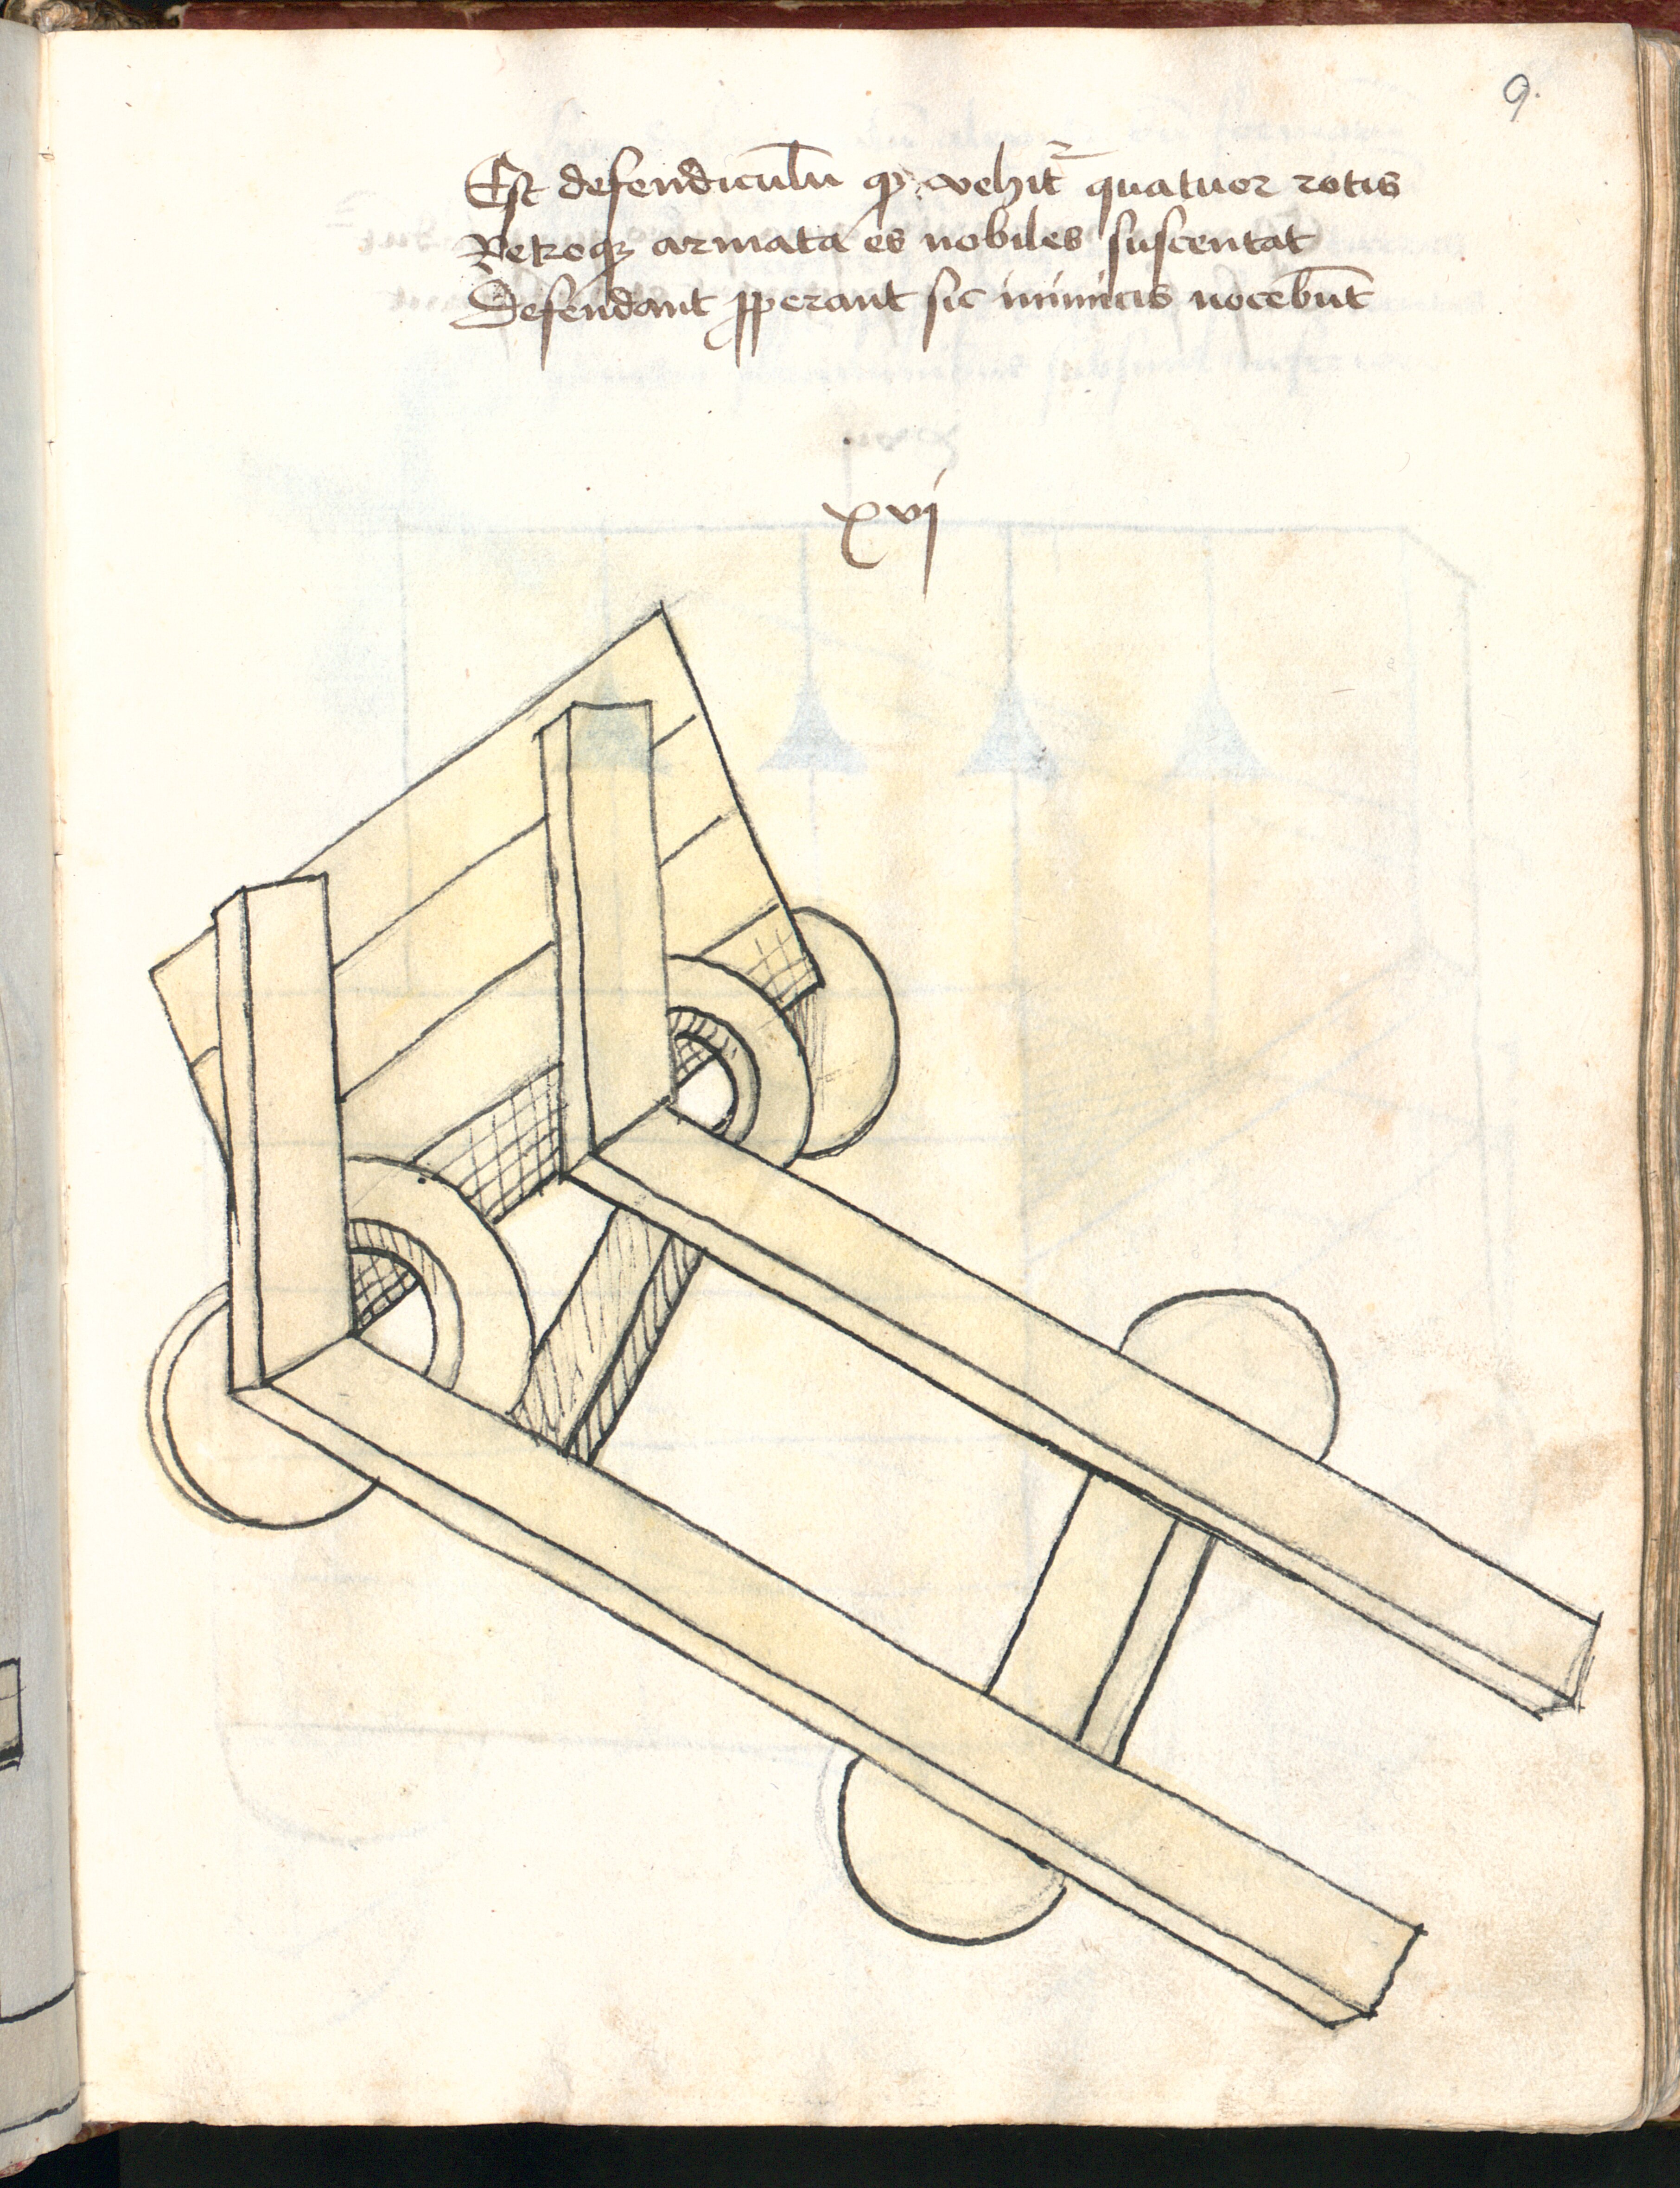 9.
Est defendiculū qᷣ vehit᷑ quatuor rotis
Retroqꝫ armata es nobiles suscentat
Defendant ꝓperant sic inimicis nocebūt
xvj